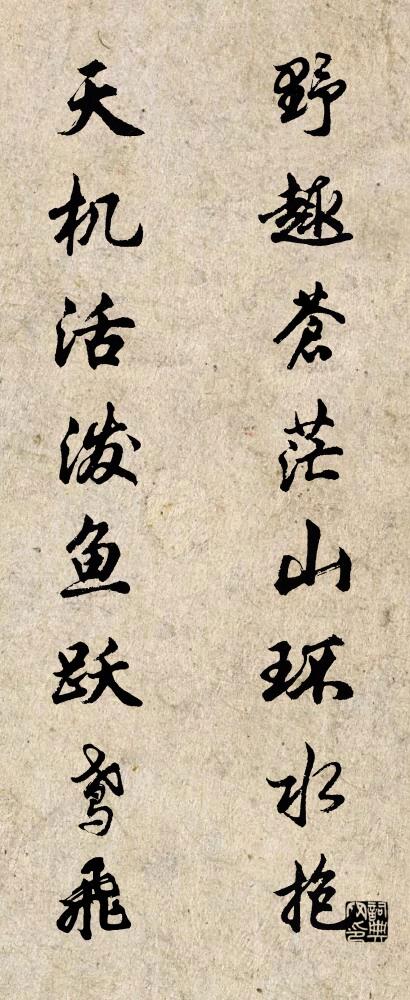 野趣苍茫山环水抱
天机活泼鱼跃鸢飞